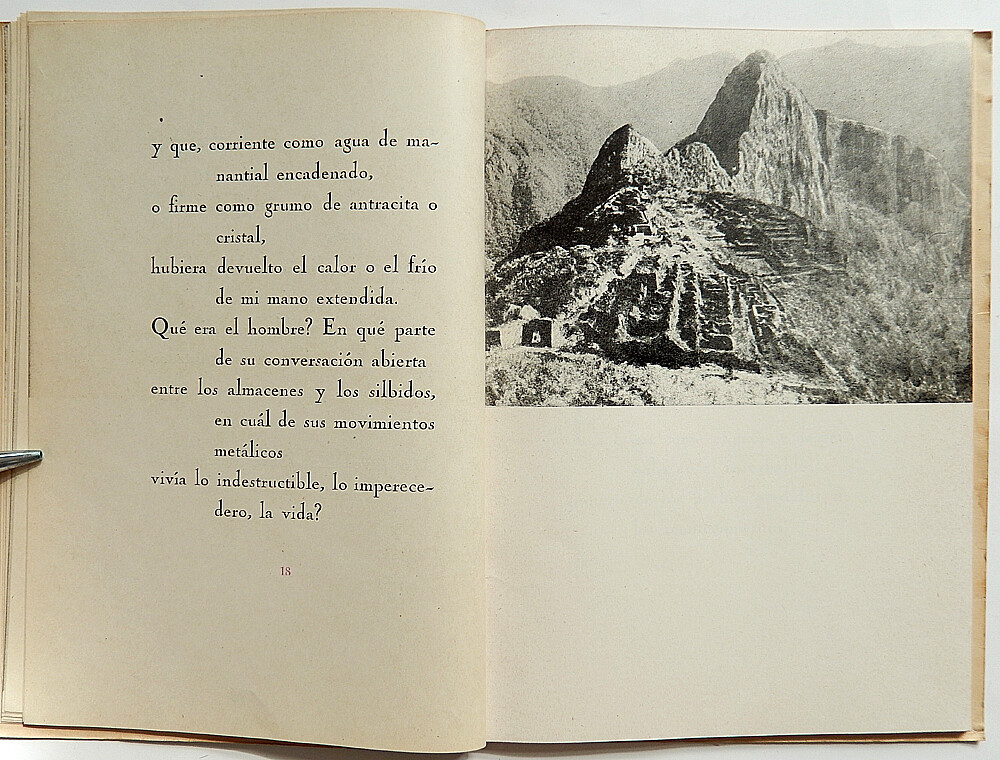 y que, corriente como agua de ma-
nantial encadenado,
o firme como grumo de antracita o
cristal,
hubiera devuelto el calor o el frío
de mi mano extendida.
Qué era el hombre? En qué parte
de su conversación abierta
entre los almacenes y los silbidos,
en cuál de sus movimientos
metálicos
vivía lo indestructible, lo imperece-
dero, la vida?
18